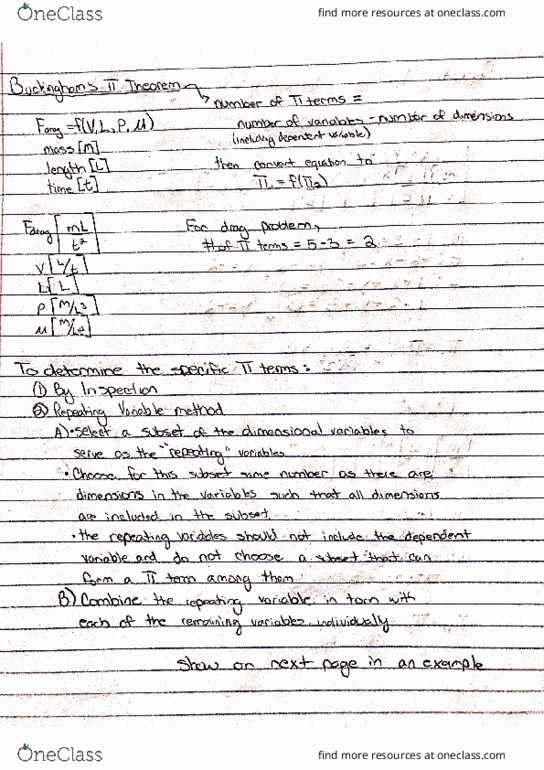 OneClass
find more resources at oneclass.com
Buckingham's π Theorem
number of π terms =
number of variables - number of dimensions
(including dependent variable)
Fdrag = f(V, L, ρ, μ)
mass [m]
length [L]
time [t]
then convert equation to
π₁ = f(π₂)
Fdrag [mL/t²]
V [L/t]
L [L]
ρ [M/L³]
μ [M/Lt]
For drag problem,
# of π terms = 5-3 = 2
To determine the specific π terms:
① By Inspection
② Repeating Variable method
A) • Select a subset of the dimensional variables to
serve as the "repeating" variables
• Choose for this subset same number as there are
dimensions in the variables such that all dimensions
are included in the subset
• the repeating variables should not include the dependent
variable and do not choose a subset that can
form a π term among them
B) Combine the repeating variable in turn with
each of the remaining variables individualy
Show on next page in an example
OneClass
find more resources at oneclass.com